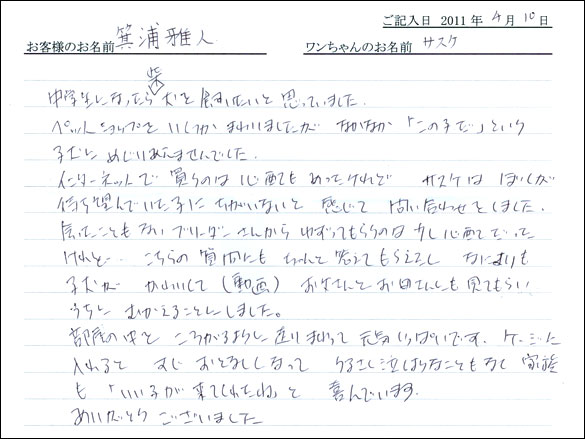 ご記入日 2011年 4月 10日
お客様のお名前 箕浦雅人 ワンちゃんのお名前 サスケ
中学生になったら柴犬を飼いたいと思っていました。
ペットショップをいくつかまわりましたがなかなか「この子だ」という
子犬にめぐりあえませんでした。
インターネットで買うのは心配でもあったけれど サスケはぼくが
待ち望んでいた子にちがいないと感じて 問い合わせをしました。
会ったこともないブリーダーさんからゆずってもらうのは少し心配だった
けれど、こちらの質問にもちゃんと答えてもらえたし なによりも
子犬がかわいくて(動画)お父さんとお母さんにも見てもらい
うちにむかえることにしました。
部屋の中をころがるように走りまわって元気いっぱいです。ケージに
入れるとすぐおとなしくなって うるさく泣くようなこともなく家族
も「いい子が来てくれたね」と喜んでいます。
ありがとうございました